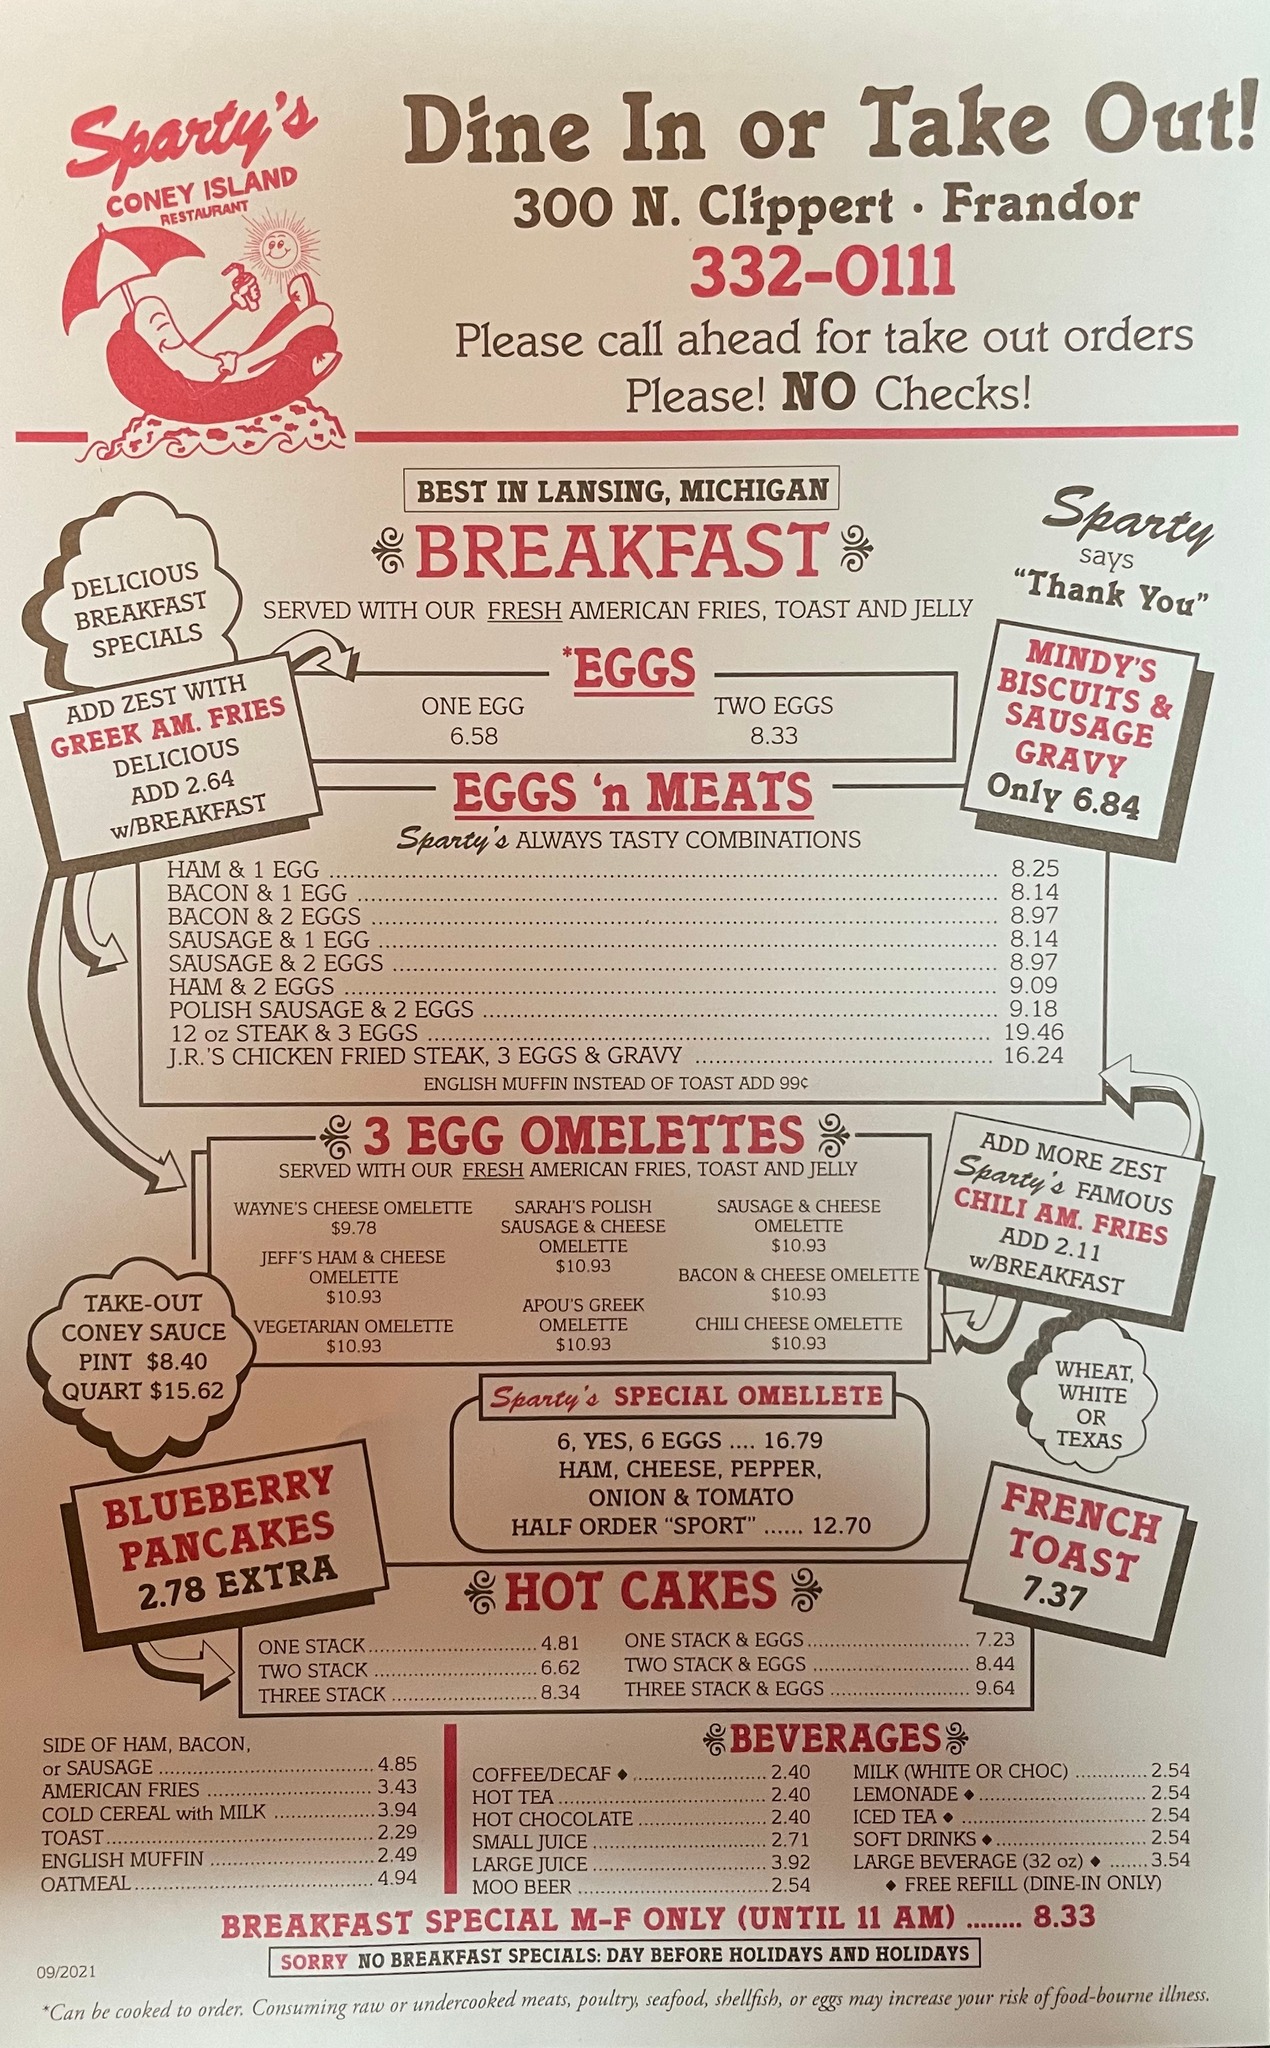 Sparty's
CONEY ISLAND
RESTAURANT
Dine In or Take Out!
300 N. Clippert · Frandor
332-0111
Please call ahead for take out orders
Please! NO Checks!
BEST IN LANSING, MICHIGAN
BREAKFAST
SERVED WITH OUR FRESH AMERICAN FRIES, TOAST AND JELLY
Sparty
says
"Thank You"
DELICIOUS
BREAKFAST
SPECIALS
ADD ZEST WITH
GREEK AM. FRIES
DELICIOUS
ADD 2.64
w/BREAKFAST
*EGGS
ONE EGG TWO EGGS
6.58 8.33
MINDY'S
BISCUITS &
SAUSAGE
GRAVY
Only 6.84
EGGS 'n MEATS
Sparty's ALWAYS TASTY COMBINATIONS
HAM & 1 EGG ........ 8.25
BACON & 1 EGG ........ 8.14
BACON & 2 EGGS ........ 8.97
SAUSAGE & 1 EGG ........ 8.14
SAUSAGE & 2 EGGS ........ 8.97
HAM & 2 EGGS ........ 9.09
POLISH SAUSAGE & 2 EGGS ........ 9.18
12 oz STEAK & 3 EGGS ........ 19.46
J.R.'S CHICKEN FRIED STEAK, 3 EGGS & GRAVY ........ 16.24
ENGLISH MUFFIN INSTEAD OF TOAST ADD 99¢
3 EGG OMELETTES
SERVED WITH OUR FRESH AMERICAN FRIES, TOAST AND JELLY
WAYNE'S CHEESE OMELETTE
$9.78
JEFF'S HAM & CHEESE
OMELETTE
$10.93
VEGETARIAN OMELETTE
$10.93
SARAH'S POLISH
SAUSAGE & CHEESE
OMELETTE
$10.93
APOU'S GREEK
OMELETTE
$10.93
SAUSAGE & CHEESE
OMELETTE
$10.93
BACON & CHEESE OMELETTE
$10.93
CHILI CHEESE OMELETTE
$10.93
ADD MORE ZEST
Sparty's FAMOUS
CHILI AM. FRIES
ADD 2.11
w/BREAKFAST
TAKE-OUT
CONEY SAUCE
PINT $8.40
QUART $15.62
Sparty's SPECIAL OMELLETE
6, YES, 6 EGGS .... 16.79
HAM, CHEESE, PEPPER,
ONION & TOMATO
HALF ORDER "SPORT" ...... 12.70
WHEAT,
WHITE
OR
TEXAS
FRENCH
TOAST
7.37
BLUEBERRY
PANCAKES
2.78 EXTRA
HOT CAKES
ONE STACK ........ 4.81
TWO STACK ........ 6.62
THREE STACK ........ 8.34
ONE STACK & EGGS ........ 7.23
TWO STACK & EGGS ........ 8.44
THREE STACK & EGGS ........ 9.64
SIDE OF HAM, BACON,
or SAUSAGE ........ 4.85
AMERICAN FRIES ........ 3.43
COLD CEREAL with MILK ........ 3.94
TOAST ........ 2.29
ENGLISH MUFFIN ........ 2.49
OATMEAL ........ 4.94
BEVERAGES
COFFEE/DECAF ♦ ........ 2.40
HOT TEA ........ 2.40
HOT CHOCOLATE ........ 2.40
SMALL JUICE ........ 2.71
LARGE JUICE ........ 3.92
MOO BEER ........ 2.54
MILK (WHITE OR CHOC) ........ 2.54
LEMONADE ♦ ........ 2.54
ICED TEA ♦ ........ 2.54
SOFT DRINKS ♦ ........ 2.54
LARGE BEVERAGE (32 oz) ♦ ....... 3.54
♦ FREE REFILL (DINE-IN ONLY)
BREAKFAST SPECIAL M-F ONLY (UNTIL 11 AM) ........ 8.33
SORRY NO BREAKFAST SPECIALS: DAY BEFORE HOLIDAYS AND HOLIDAYS
09/2021
*Can be cooked to order. Consuming raw or undercooked meats, poultry, seafood, shellfish, or eggs may increase your risk of food-bourne illness.